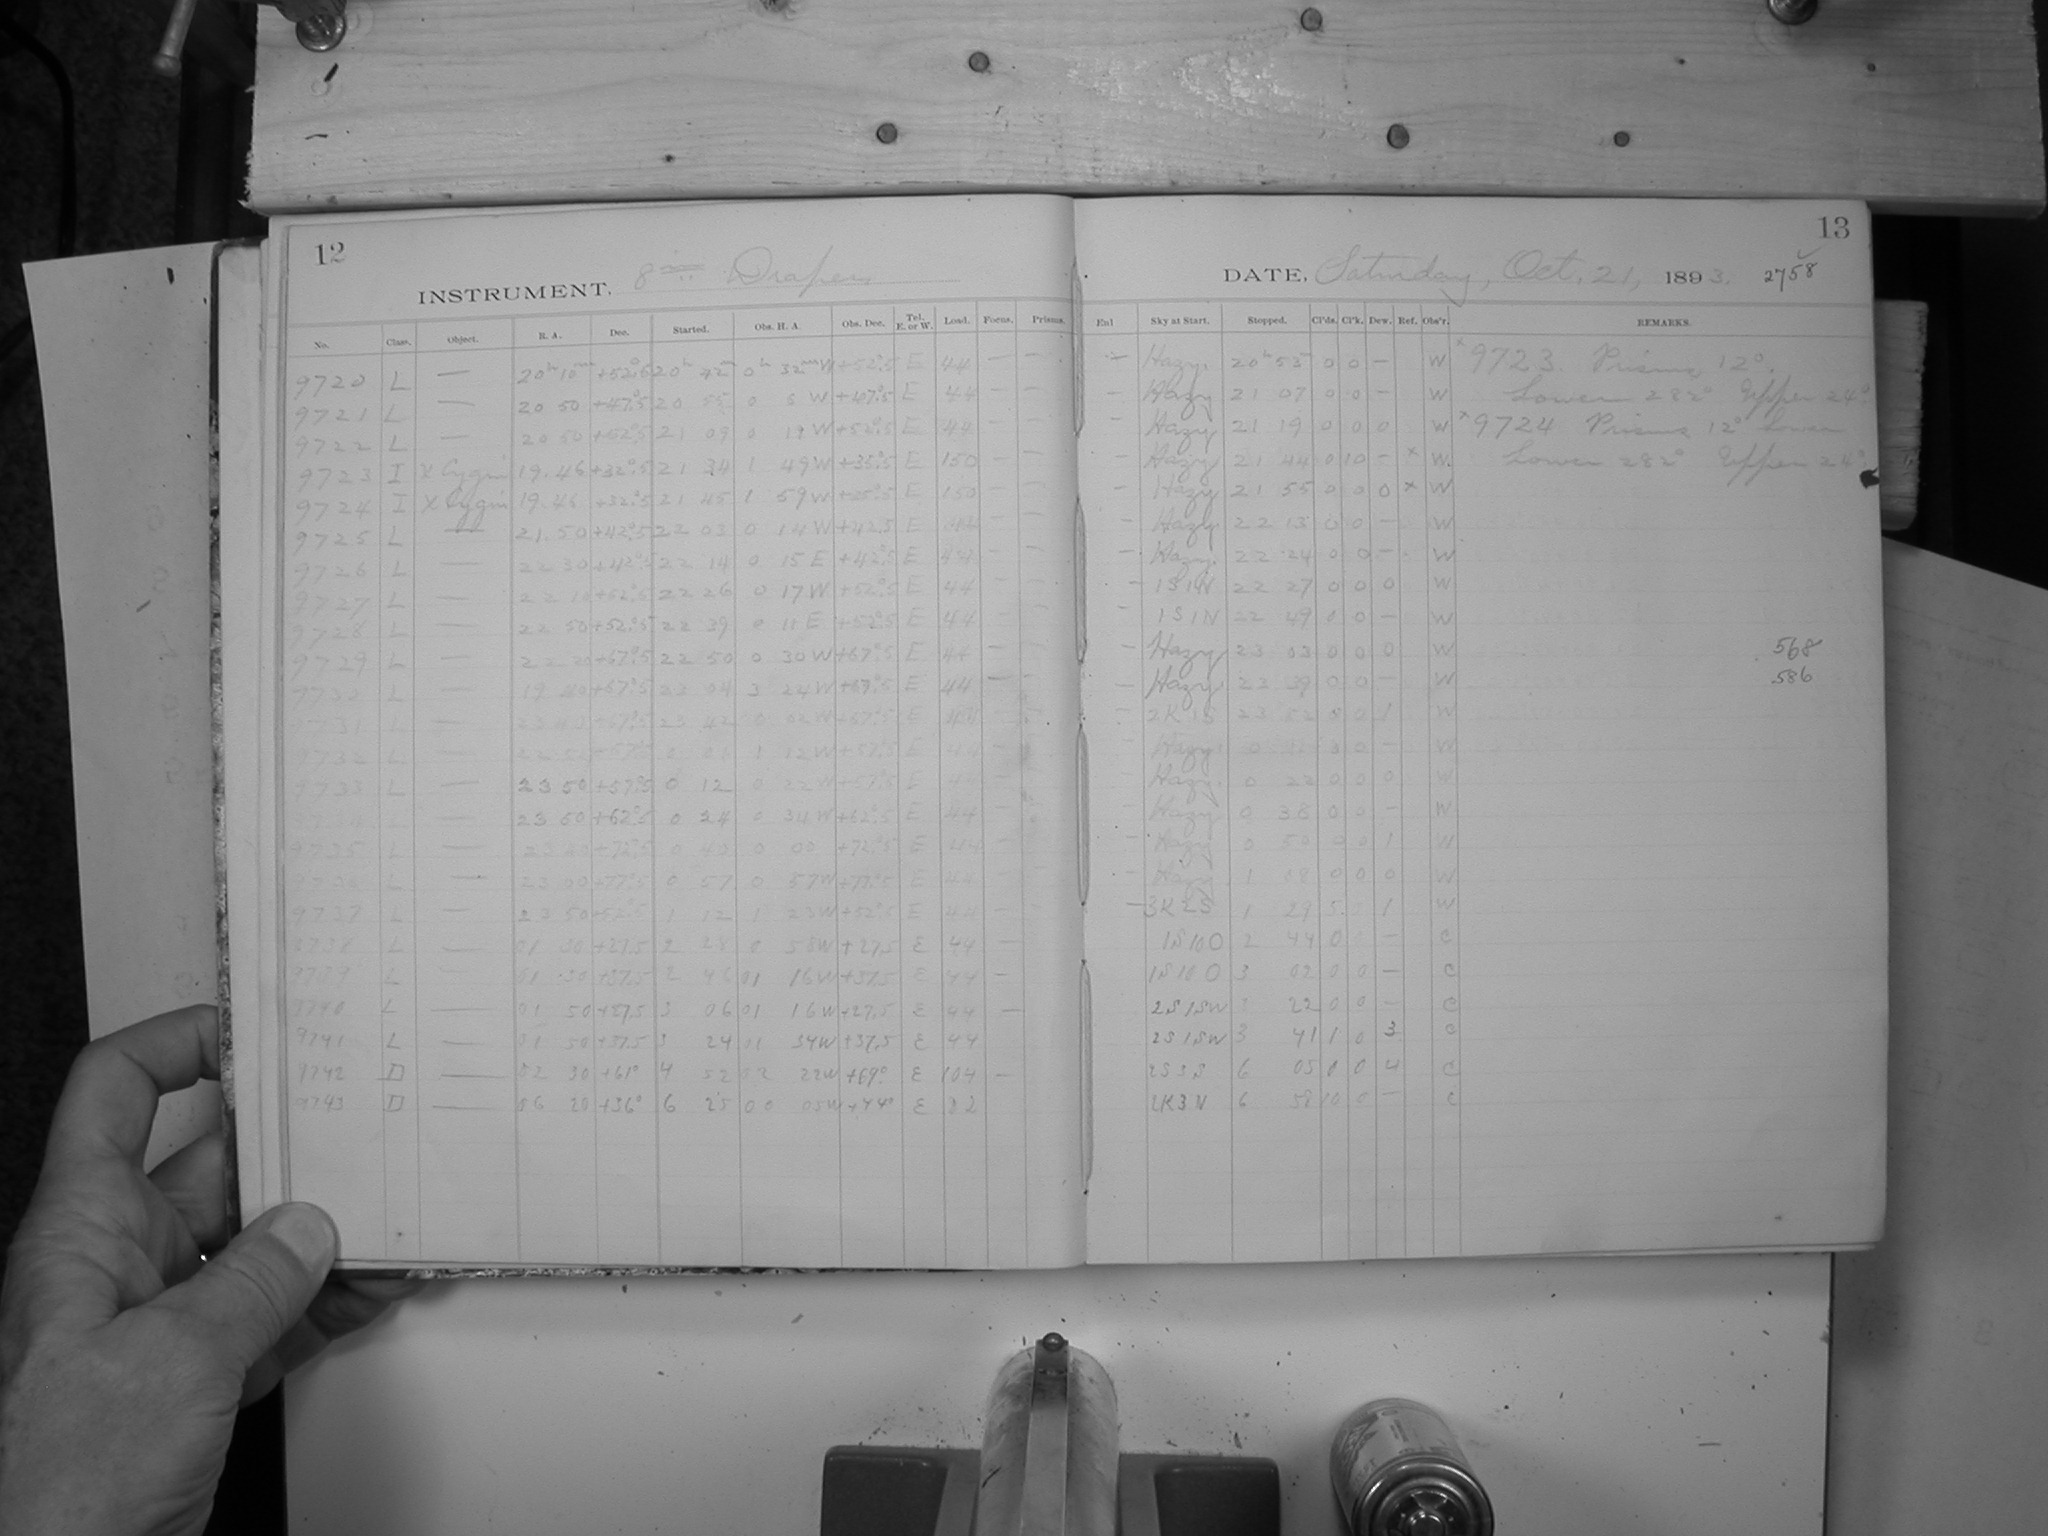 12
INSTRUMENT, 8 in Draper
No. Class. Object. R. A. Dec. Started. Obs. H. A. Obs. Dec. Tel. E. or W. Load. Focus. Prisms.
9720 L — 20h 10m +52°.5 20h 42m 0h 32m W +52°.5 E 44 — —
9721 L — 20 50 +47°.5 20 55 0 5 W +47°.5 E 44 — —
9722 L — 20 50 +52°.5 21 09 0 19 W +52°.5 E 44 — —
9723 I X Cygni 19.46 +32°.5 21 34 1 49 W +35°.5 E 150 — —
9724 I X Cygni 19.46 +32°.5 21 45 1 59 W E 150 — —
9725 L — 21.50 +42°.5 22 03 0 14 W +42.5 E — —
9726 L — 22 30 +42°.5 22 14 0 15 E +42°.5 E 44 — —
9727 L — 22 10 +52°.5 22 26 0 17 W +52°.5 E 44 — —
9728 L — 22 50 +52°.5 22 39 0 11 E +52°.5 E 44 — —
9729 L — 22 20 +67°.5 22 50 0 30 W +67°.5 E 44 — —
9730 L — 19 40 +67°.5 04 3 24 W +67°.5 E 44 — —
9731 L — +67°.5 23 42 0 02 W +67°.5 E 44 — —
9732 L — +57°.5 0 1 12 W +57°.5 E 44 —
9733 L — 23 50 +57°.5 0 12 0 22 W +57°.5 E 44 —
23 50 +62°.5 0 24 0 34 W +62°.5 E 44 —
9735 L — +72°.5 0 40 0 00 +72°.5 E 44 —
9736 L — 23 00 +77°.5 0 57 0 57 W +77°.5 E 44 —
9737 L — 23 50 +52°.5 1 12 1 23 W +52°.5 E 44 —
9738 L — 01 30 +27.5 2 28 0 58 W +27.5 E 44 —
9739 L — 01 30 +37.5 2 46 01 16 W +37.5 E 44 —
9740 L — 01 50 +27.5 3 06 01 16 W +27.5 E 44 —
9741 L — 01 50 +37.5 3 24 01 34 W +37.5 E 44
9742 D — 02 30 +61° 4 52 02 22 W +69° E 104 —
9743 D — 06 20 +36° 6 25 00 05 W +44° E 82
13
DATE, Saturday, Oct. 21, 1893. 2758
Enl Sky at Start. Stopped. Cl'ds. Cl'k. Dew. Ref. Obs'r. REMARKS.
— Hazy. 20h 53m 0 0 — W x 9723. Prisms 12°.
— Hazy 21 07 0 0 — W Lower 282° Upper 24°
— Hazy 21 19 0 0 0 W x 9724 Prisms 12° Lower
— Hazy 21 44 0 10 — x W. Lower 282° Upper 24°
— Hazy 21 55 0 0 0 x W
— Hazy 22 13 0 0 — W
— Hazy. 22 24 0 0 — W
— 1S1N 22 27 0 0 0 W
— 1S1N 22 49 0 0 — W
— Hazy 23 03 0 0 0 W 568
— Hazy 39 0 0 — W 586
— 2K1S 23 52 0 1 W
— Hazy. 0 3 0 — W
Hazy. 0 22 0 0 0 W
Hazy 0 38 0 0 — W
— Hazy 0 50 0 0 1 W
— Hazy 1 08 0 0 0 W
— 3K2S 1 29 5 1 W
1S10O 2 44 0 — C
1S10O 3 02 0 0 — C
2S1SW 3 22 0 0 — C
2S1SW 3 41 1 0 3 C
2S3S 6 05 0 0 4 C
2K3N 6 58 10 0 — C